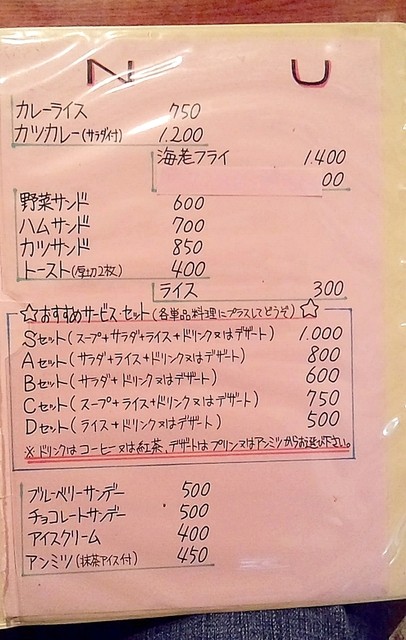 N U
カレーライス 750
カツカレー(サラダ付) 1,200
海老フライ 1,400
00
野菜サンド 600
ハムサンド 700
カツサンド 850
トースト(厚切2枚) 400
ライス 300
☆おすすめサービス・セット(各単品料理にプラスしてどうぞ)☆
Sセット(スープ+サラダ+ライス+ドリンク又はデザート) 1,000
Aセット(サラダ+ライス+ドリンク又はデザート) 800
Bセット(サラダ+ドリンク又はデザート) 600
Cセット(スープ+ライス+ドリンク又はデザート) 750
Dセット(ライス+ドリンク又はデザート) 500
※ドリンクはコーヒー又は紅茶、デザートはプリン又はアンミツからお選び下さい。
ブルーベリーサンデー 500
チョコレートサンデー 500
アイスクリーム 400
アンミツ(抹茶アイス付) 450